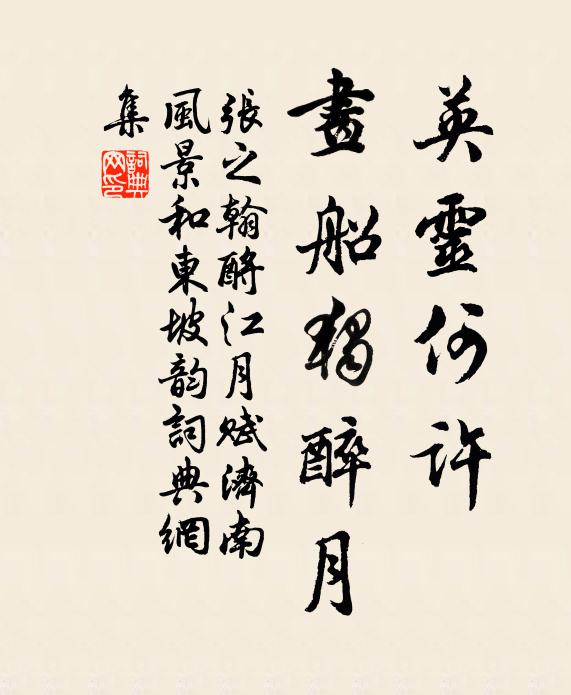 英靈何許
畫船獨醉月
張之翰酹江月賦濟南
風景和東坡韵詞典網
集
詞典網印